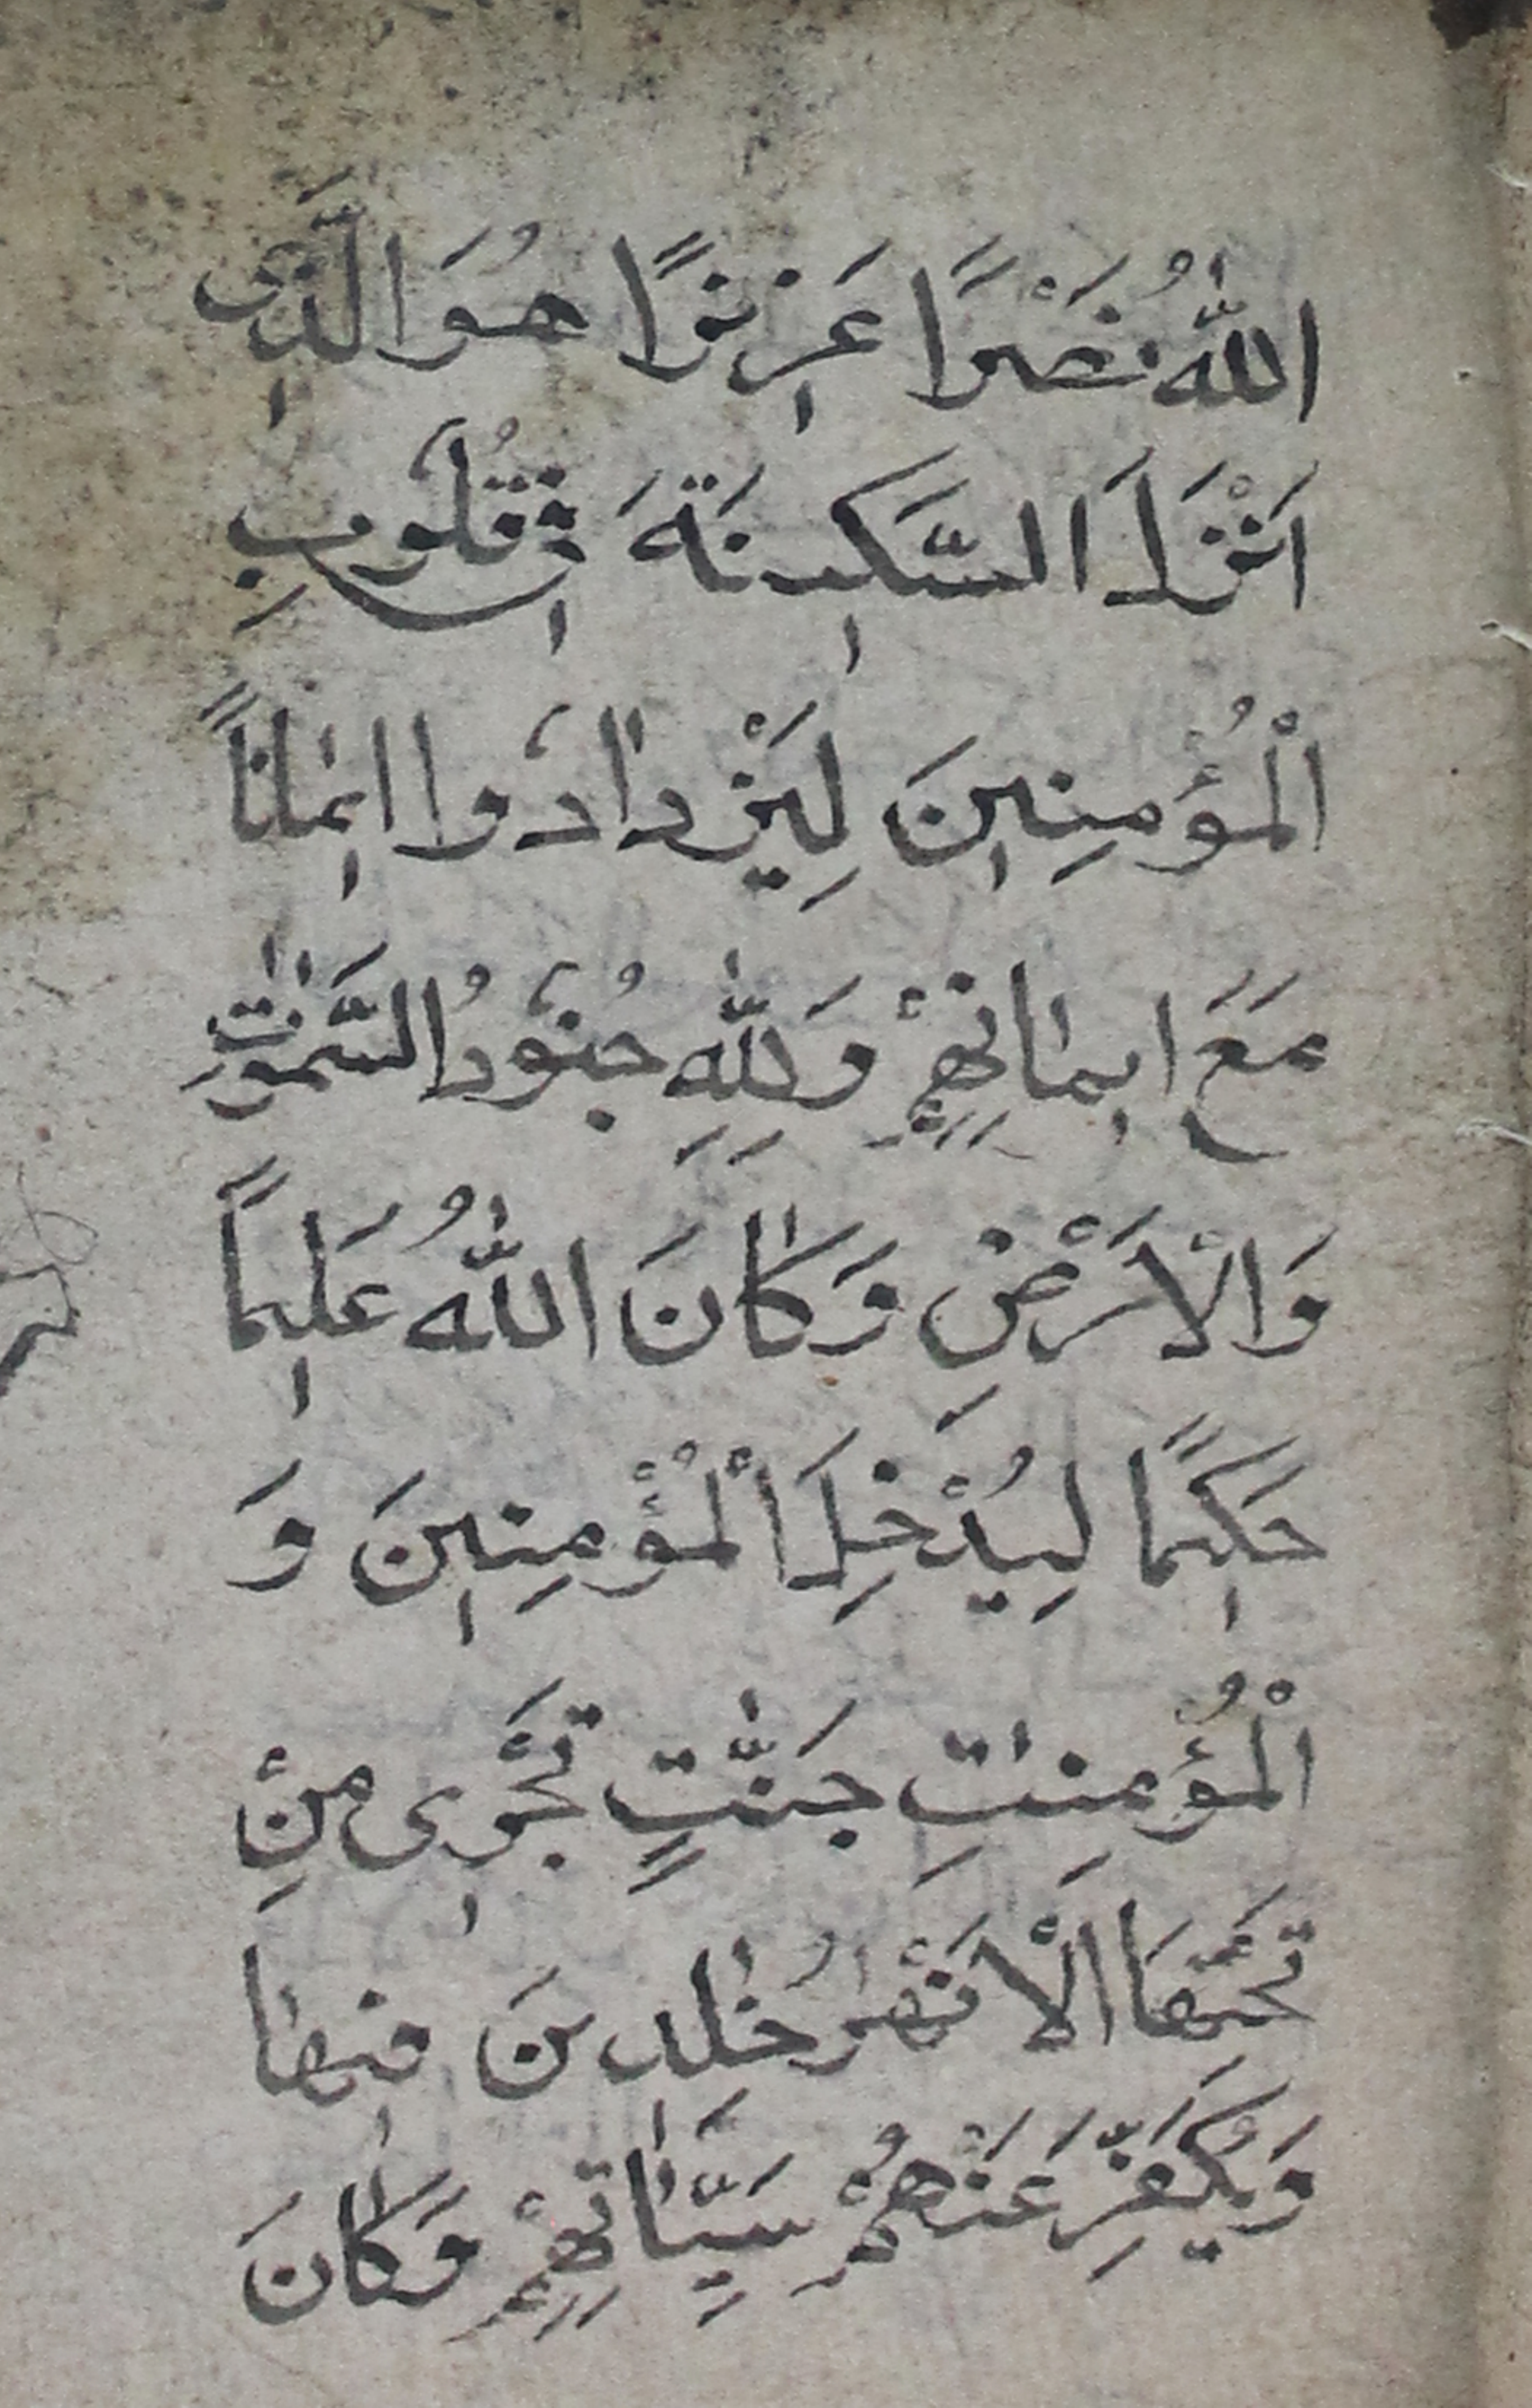 اللّٰهُ نَصْرًا عَزِيزًا هُوَ الَّذِى
اَنْزَلَ السَّكِينَةَ فِى قُلُوبِ
الْمُؤْمِنِينَ لِيَزْدَادُوا اِيمَانًا
مَعَ اِيمَانِهِمْ وَلِلّٰهِ جُنُودُ السَّمٰوٰتِ
وَالْاَرْضِ وَكَانَ اللّٰهُ عَلِيمًا
حَكِيمًا لِيُدْخِلَ الْمُؤْمِنِينَ وَ
الْمُؤْمِنٰتِ جَنّٰتٍ تَجْرِى مِنْ
تَحْتِهَا الْاَنْهٰرُ خٰلِدِينَ فِيهَا
وَيُكَفِّرَ عَنْهُمْ سَيِّاٰتِهِمْ وَكَانَ